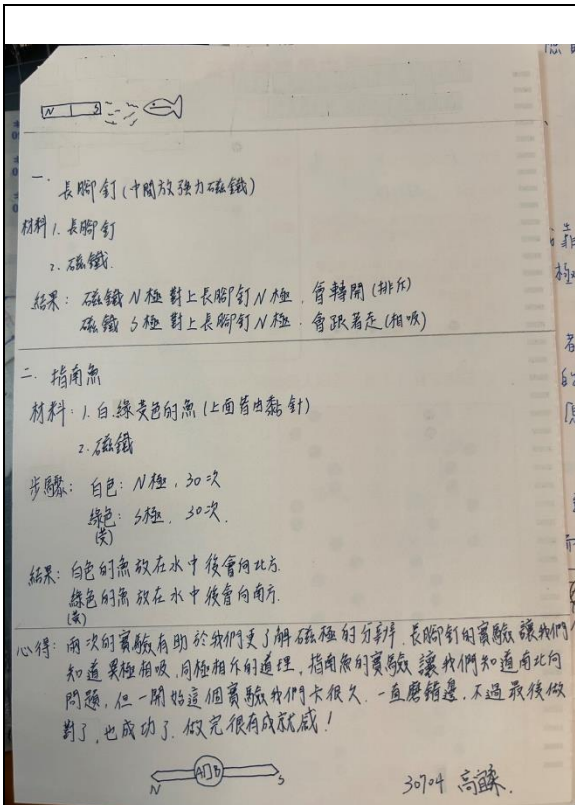 N S
一.
長腳釘(中間放強力磁鐵)
材料 1. 長腳釘
2. 磁鐵.
結果: 磁鐵 N 極 對上長腳釘 N 極. 會轉開(排斥)
磁鐵 S 極 對上長腳釘 N 極. 會跟著走(相吸)
二. 指南魚
材料: 1. 白.綠黃色的魚(上面皆由黏針)
2. 磁鐵
步驟: 白色: N極, 30次
綠色: S極, 30次.
(黃)
結果: 白色的魚放在水中後會向北方.
綠色的魚放在水中後會向南方.
(黃)
心得: 兩次的實驗有助於我們更了解磁極的分辨. 長腳釘的實驗讓我們
知道異極相吸,同極相斥的道理, 指南魚的實驗讓我們知道南北向
問題, 但一開始這個實驗我們卡很久. 一直磨錯邊, 不過最後做
對了, 也成功了. 做完很有成就感!
N A B S
30704 高